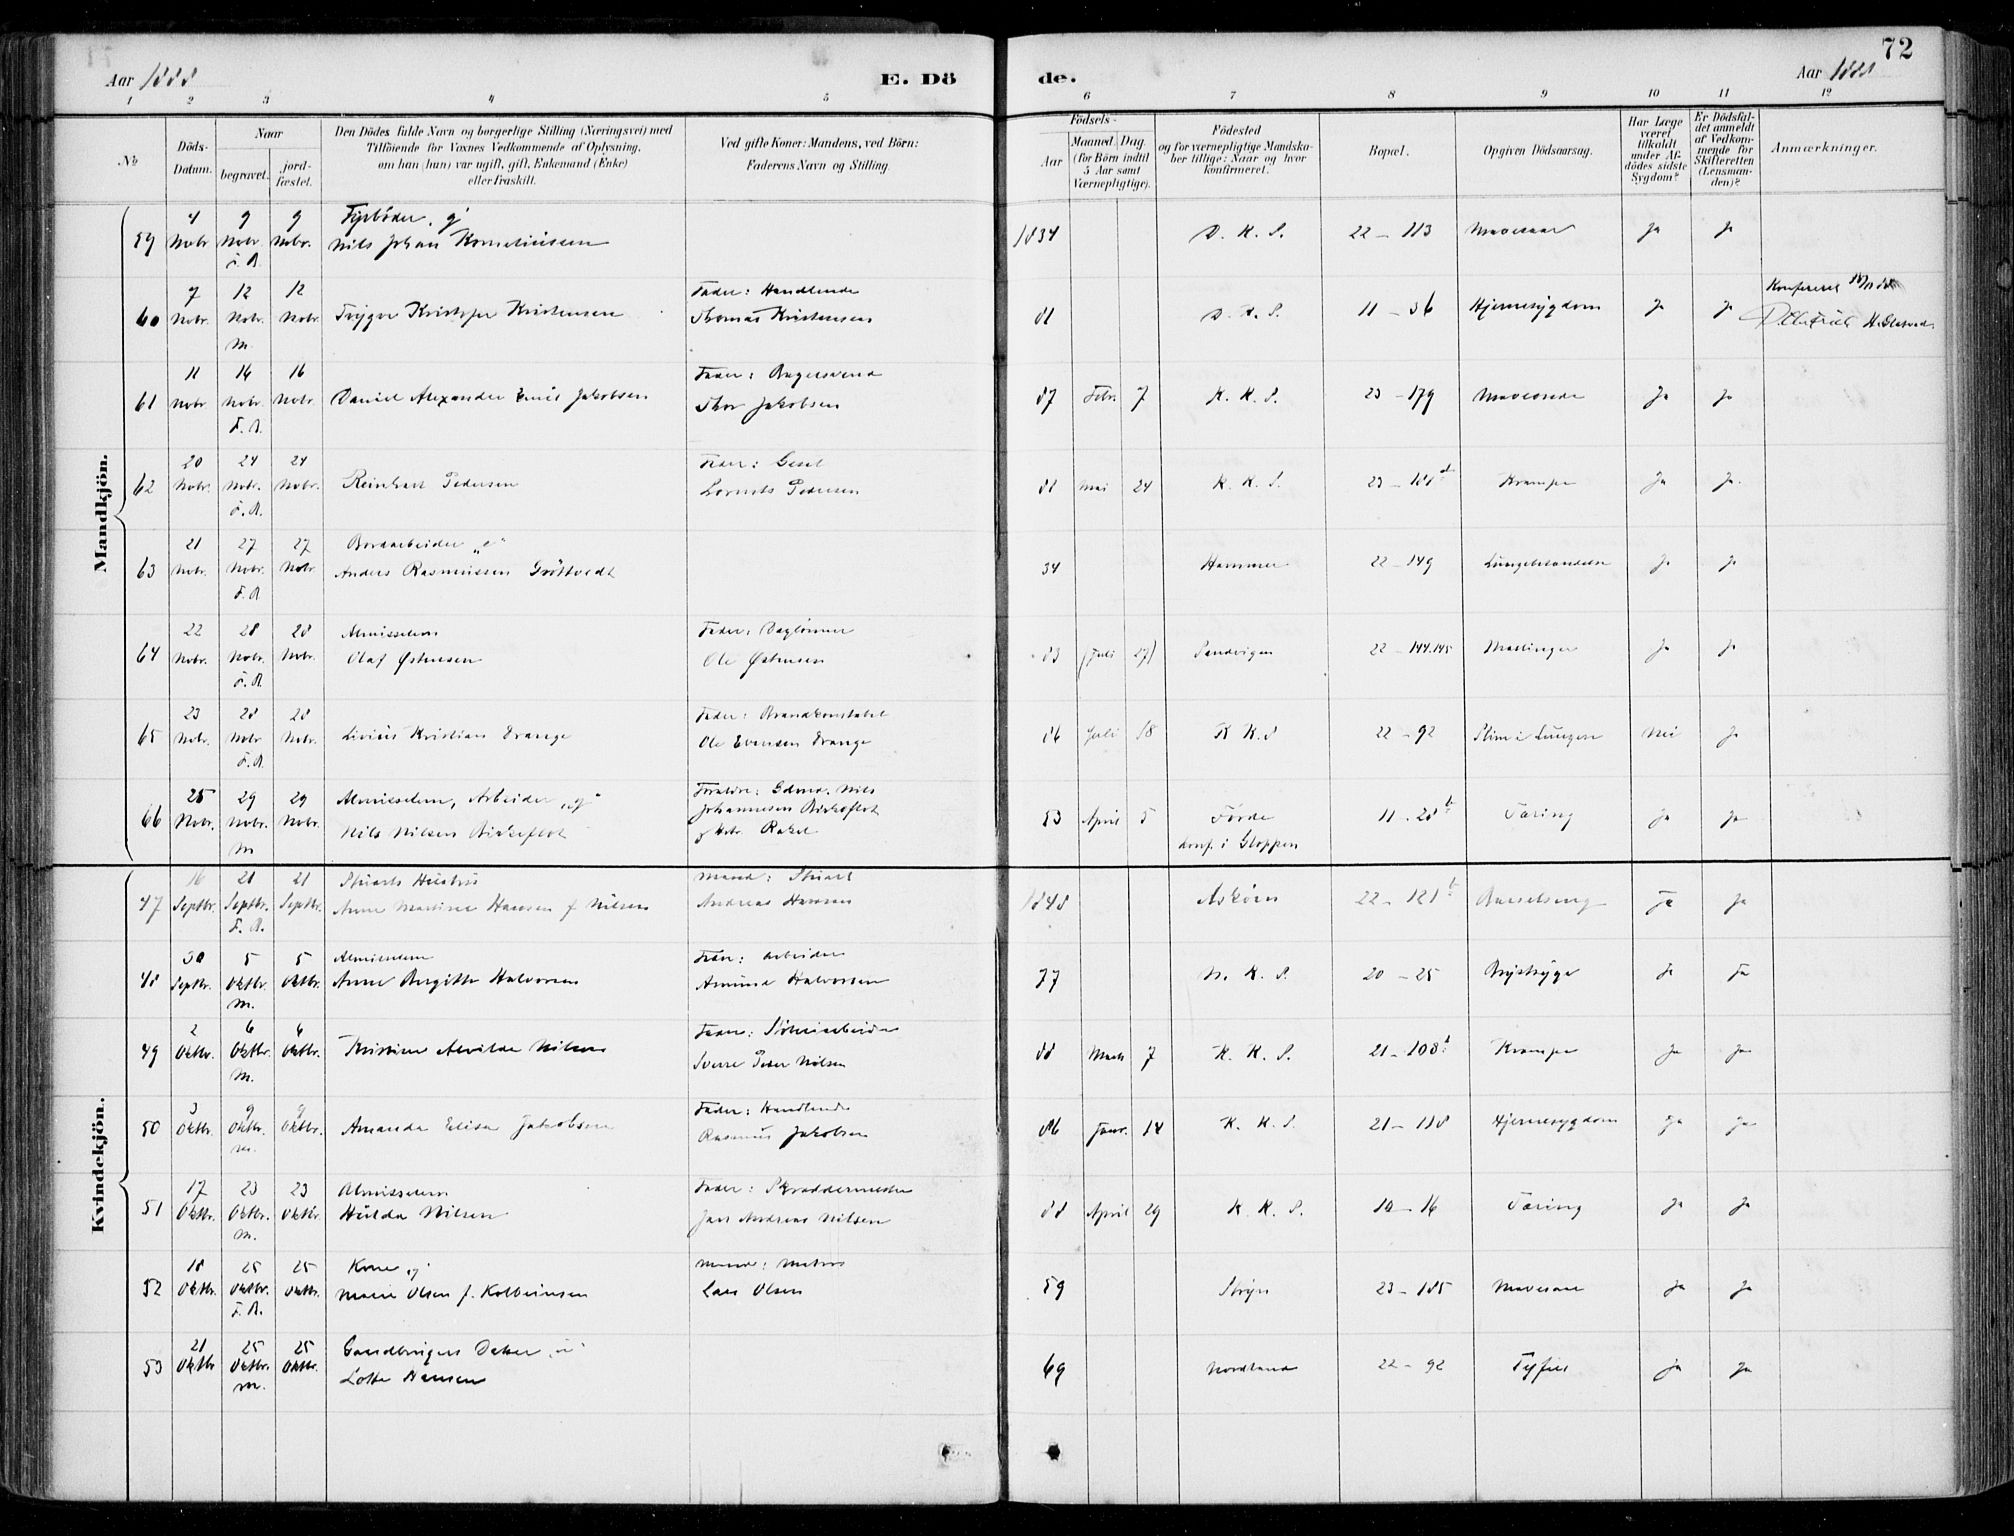 72
Aar 1888
E. Dö
de.
Aar 1888
1 2 3 4 5 6 7 8 9 10 11 12
No
Döds-Datum.
Naar
begravet.
jord-fæstet.
Den Dödes fulde Navn og borgerlige Stilling (Næringsvei) med
Tilföiende for Voxnes Vedkommende af Oplysning,
om han (hun) var ugift, gift, Enkemand (Enke)
eller fraskilt.
Ved gifte Koner: Mandens, ved Börn:
Faderens Navn og Stilling.
Födsels-
Aar
Maaned. Dag.
(for Börn indtil
5 Aar samt
Værnepligtige).
Födested
og for værnepligtige Mandska-
ber tillige: Naar og hvor
konfirmeret.
Bopæl.
Opgiven Dödsaarsag.
Har Læge
været
tilkaldt
under Af-
dödes sidste
Sygdom?
Er Dödsfal-
det anmeldt
af Vedkom-
mende for
Skifteretten
(Lensman-
den)?
Anmærkninger.
Mandkjön.
59 4 Nobr 9 Nobr. 9 Nobr. Fyrböder, g
Nils Johan Korneliussen 1834 D. K. S. 22 - 113 Mavesaar Ja Ja
60 7 Nobr. 12 Nobr. M. 12 Nobr. Trygve Kristofer Kristensen Fader: Handlende
Thomas Kristensen 81 D. K. S. 11 - 36 Hjernesygdom Ja Ja Konfereret
61 11 Nobr. 16 Nobr. F.A. 16 Nobr. Daniel Alexander Emil Jakobsen Fader: Bagersvend
Thor Jakobsen 87 Febr. 7 K. K. S. 23 - 179 Ja Ja
62 20 Nobr. 24 Nobr. 24 Nobr. Reinhart Pedersen Fader: Gesel
Lornits Pedersen 88 Mai 24 K. K. S. 23 - 188 Krampe Ja Ja.
63 21 Nobr. 27 Nobr. F.A. 27 Nobr. "e"
Anders Rasmussen Gröttvedt 34 Hammer 22 - 149 Lungebetændelse Ja Ja
64 22 Nobr. 28 Nobr. 28 Nobr. Almisselem
Olaf Østensen Fader: Daglönner
Ole Østensen 83 (Juli 27) Sandvigen 22 - 144.145 Meslinger Ja Ja
65 23 Nobr. 28 Nobr F.A. 28 Nobr. Livius Kristian Drange Fader: Brandkonstabel
Ole Evensen Drange 86 Juli 18 K K. S 22 - 92 Slim i Lungene Nei Ja
66 25 Nobr. 29 Nobr. M 29 Nobr. Almisselem, Arbeider, "g"
Nils Nilsen Birkeflot Forældre: Gdmd. Nils
Johannesen Birkeflot
Rakel 53 April 5 Förde
konf. i Gloppen 11 - 28 b Tæring Ja Ja
Kvindekjön.
47 16 Septbr. 21 Septbr. F.A. 21 Septbr. Stuarts Hustru
Anne Martine Hansen f Nilsen Mand: Stuart
Andreas Hansen 1848 Askøen 22 - 121 b Barselseng Ja Ja
48 30 Septbr. 5 Oktbr. M. 5 Oktbr. Almisselem
Anne Birgitte Halvorsen Fader: Arbeider
Halvorsen 77 N. K. S. 20 - 25 Brystsyge Ja Ja
49 2 Oktbr. 6 Oktbr. M. 6 Oktbr. Kristine Alvilde Nilsen Fader:
Sverre Peder Nilsen 88 Marts 7 K. K. S. 21 - 108 Krampe Ja Ja
50 3 Oktbr. 9 Oktbr. M. 9 Oktbr. Amanda Elisa Jakobsen Fader: Handlende
Rasmus Jakobsen 86 Janr. 14 K. K. S. 21 - 118 Hjernesygdom Ja Ja
51 17 Oktbr. 23 Oktbr. M. 23 Oktbr. Almisselem
Hulda Nilsen Fader: Skræddermester
Jan Andreas Nilsen 88 April 29 K. K. S. 10 - 16 Tæring Ja Ja
52 18 Oktbr. 25 Oktbr. F.A. 25 Oktbr. Kone g
Marie Olsen f. Kolbeinsen Mand: Matros
Lars Olsen 59 Stryn 23 - 185 Mavesaar Ja Ja
53 21 Oktbr 25 Oktbr. M. 25 Oktbr. Gaardbrugers Datter "u"
Lotte Hansen 69 Nordland 22 - 92 Tyfus Ja Ja